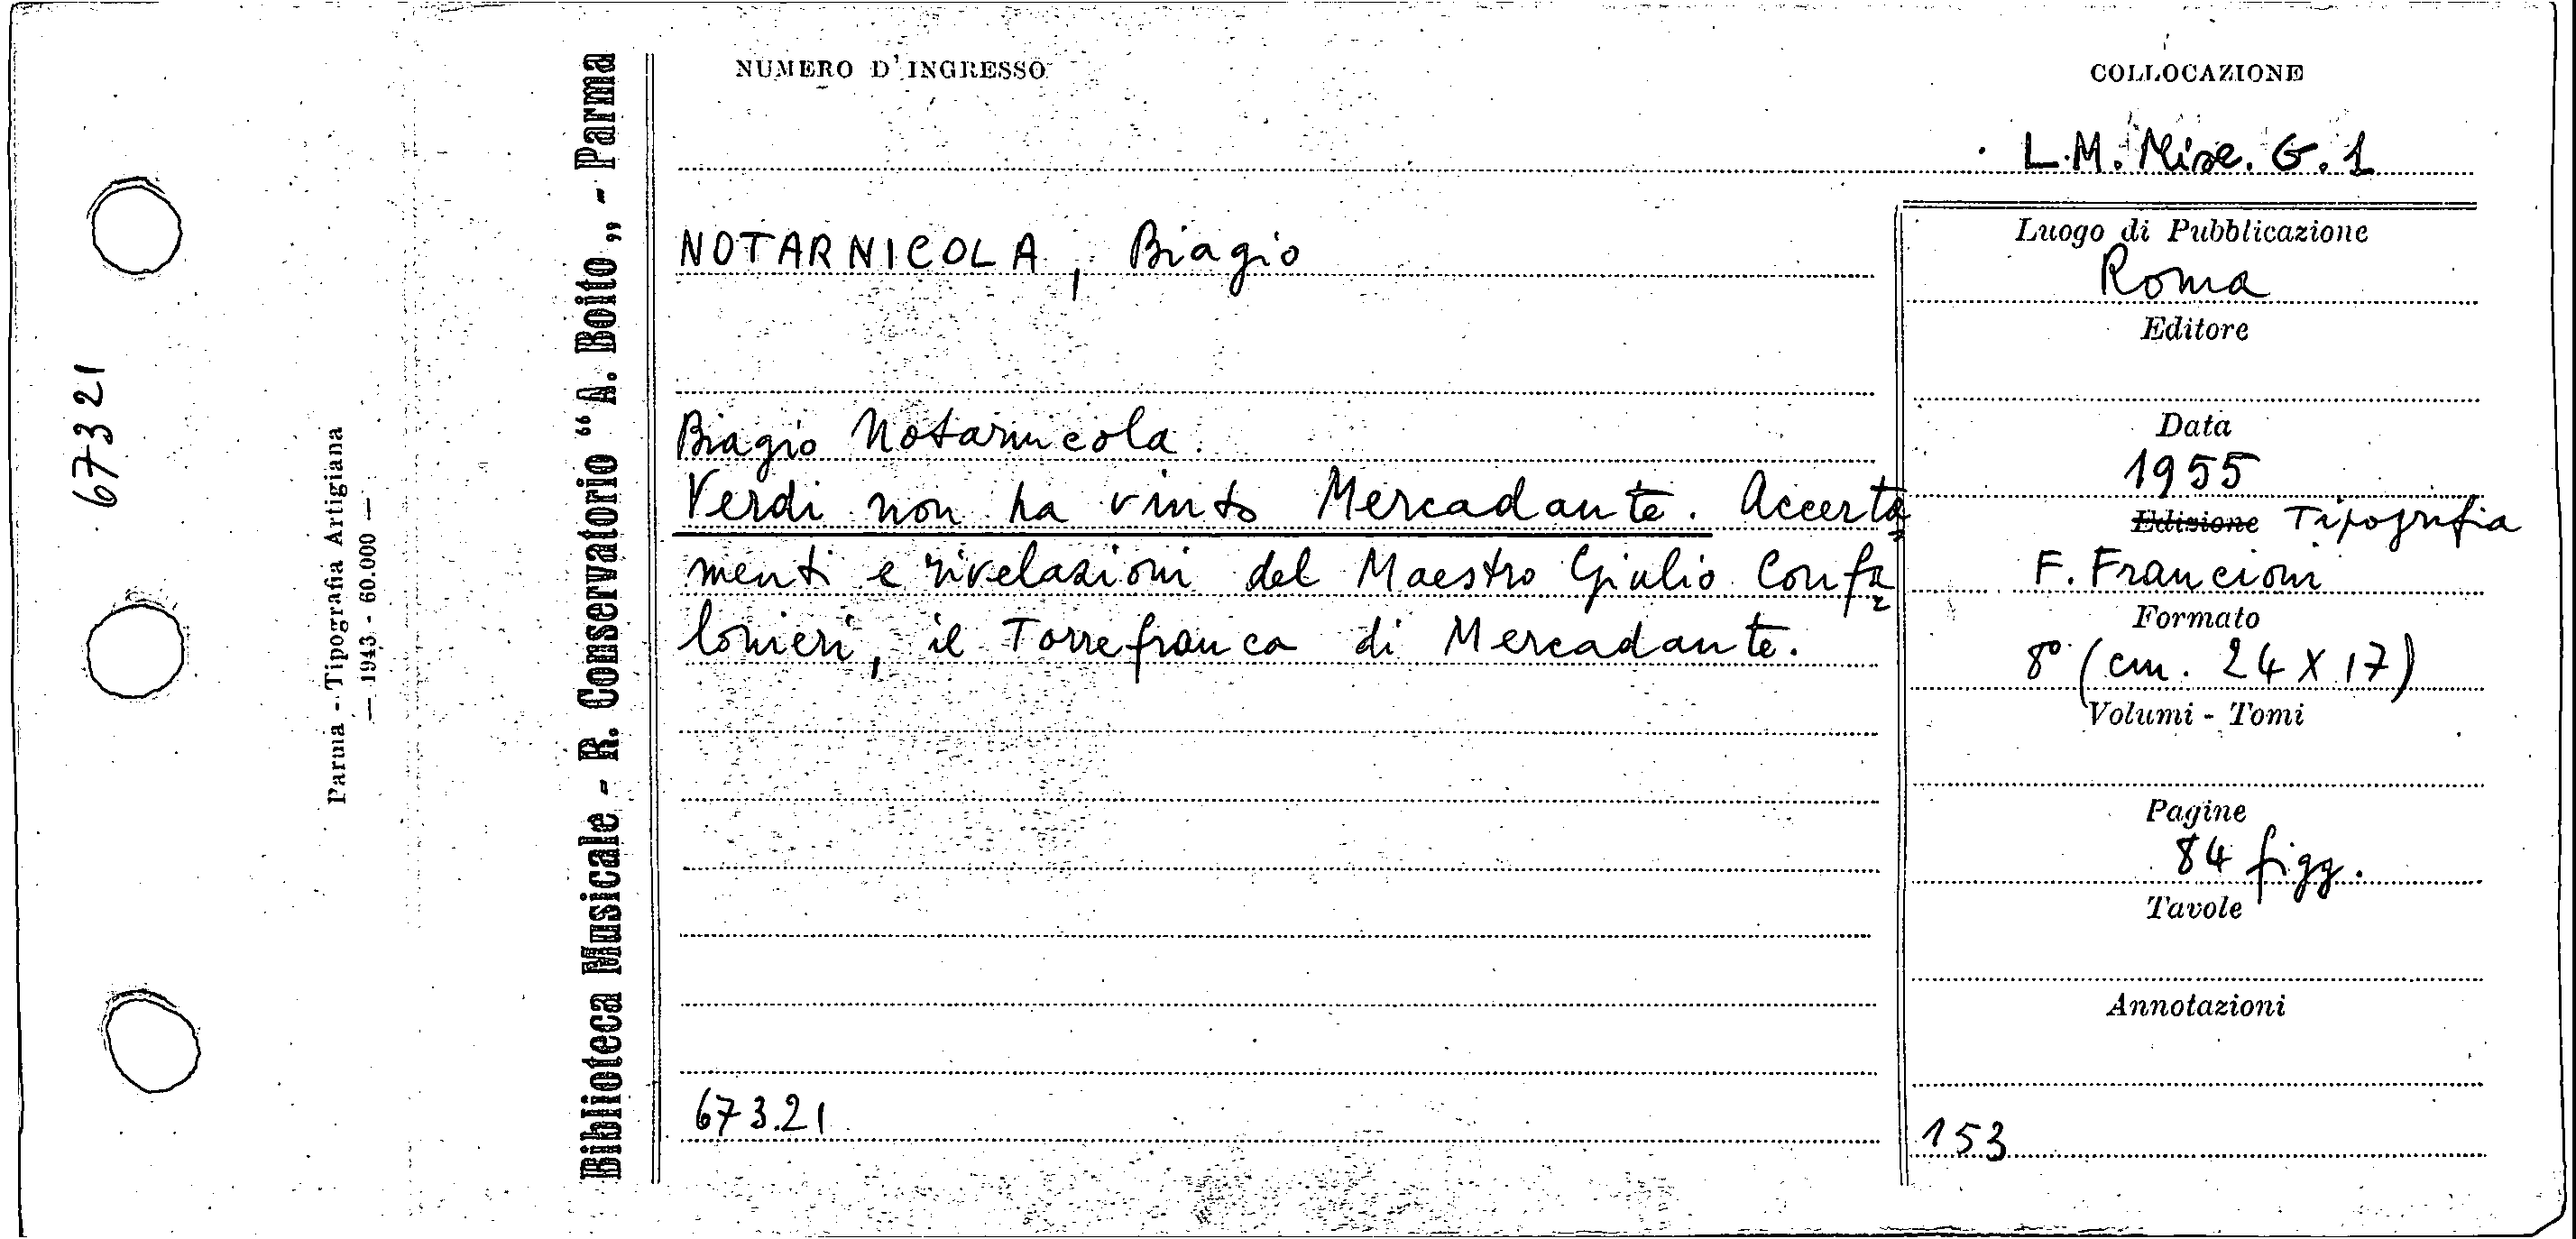 67321
Parma - Tipografia Artigiana
— 1943 - 60.000 —
Biblioteca Musicale - R. Conservatorio “A. Boito„ - Parma
NUMERO D'INGRESSO
COLLOCAZIONE
L.M. Misc. G. 1
NOTARNICOLA, Biagio
Biagio Notarnicola.
Verdi non ha vinto Mercadante. Accerta=
menti e rivelazioni del Maestro Giulio Confa=
lonieri, il Torrefranca di Mercadante.
67321
Luogo di Pubblicazione
Roma
Editore
Data
1955
Edizione Tipografia
F. Francioni
Formato
8° (cm. 24 X 17)
Volumi - Tomi
Pagine
84 figg.
Tavole
Annotazioni
153